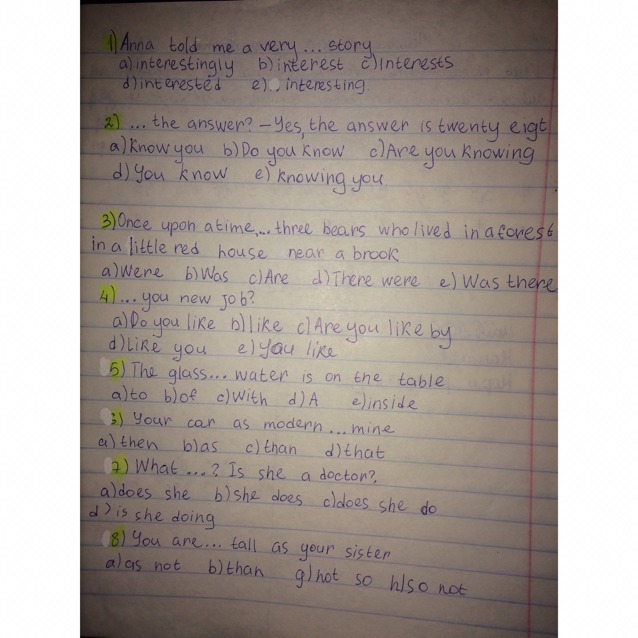 1) Anna told me a very ... story
a) interestingly b) interest c) interests
d) interested e) interesting.
2) ... the answer? – Yes, the answer is twenty eigt
a) Know you b) Do you know c) Are you knowing
d) You know e) knowing you
3) Once upon a time, ... three bears who lived in a forest
in a little red house near a brook
a) Were b) Was c) Are d) There were e) Was there
4) ... you new job?
a) Do you like b) like c) Are you like by
d) Like you e) You like
5) The glass ... water is on the table
a) to b) of c) With d) A e) inside
6) Your car as modern ... mine
a) then b) as c) than d) that
7) What ...? Is she a doctor?
a) does she b) she does c) does she do
d) is she doing
8) You are ... tall as your sister
a) as not b) than g) not so h) so not